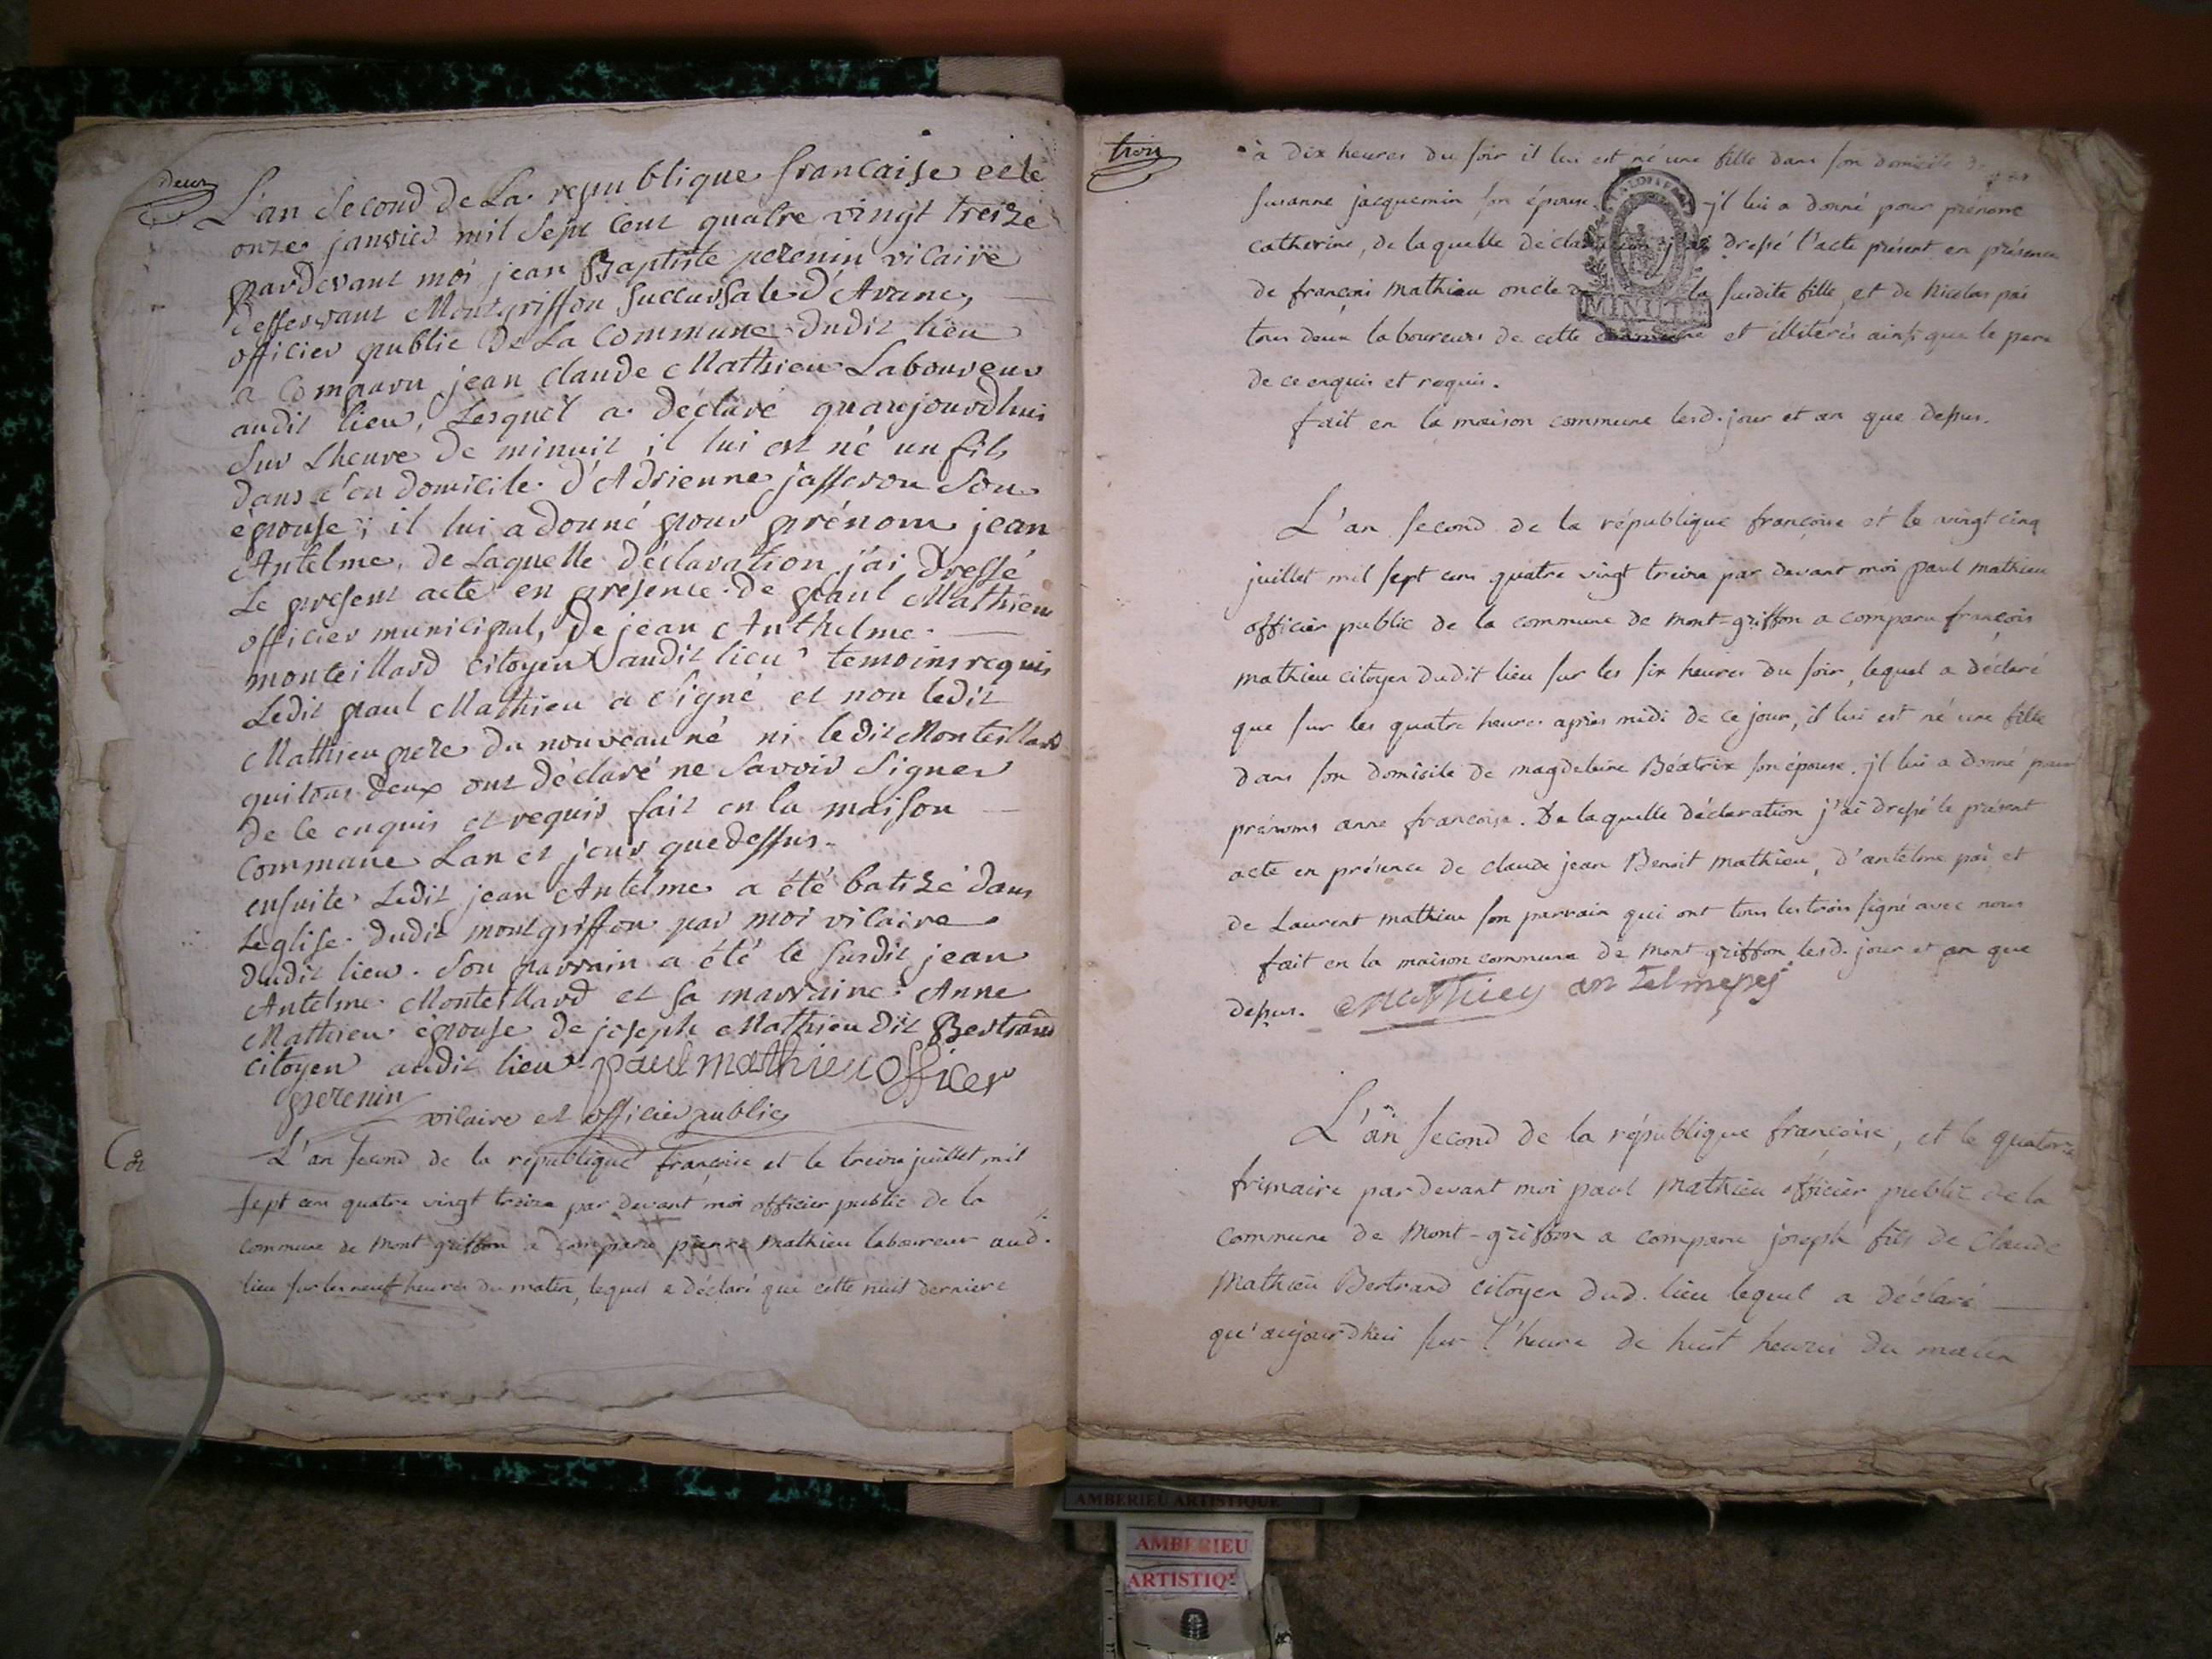 deux
L'an second de La republique francaise et le
onze janvier mil sept cent quatre vingt treize
pardevant moi jean Baptiste perenin vicaire
desservant Montgriffon succursale d'Aranc,
officier public De La Commune dudit lieu
a Comparu jean claude Mathieu Laboureur
audit lieu, Lesquel a déclaré quaujourdhui
sur Lheure De minuit il lui est né un fils
dans son domicile d'Adrienne jasseron son
épouse; il lui a donné pour prénom jean
Antelme, de Laquelle déclaration j'ai Dressé
Le present acte en presence de paul Mathieu
officier municipal, De jean Anthelme
monteillard citoyen audit lieu temoins requis
Ledit paul Mathieu a signé et non ledit
Mathieu pere du nouveau né ni ledit Monteillard
qui tous deux ont déclaré ne savoir signer
de ce enquis et requis fait en la maison
commune Lan et jour que dessus.
ensuite Ledit jean Antelme a été batizé dans
Leglise dudit montgriffon par moi vicaire
dudit lieu. Son parrain a été le susdit jean
Antelme Monteillard et sa marraine Anne
Mathieu épouse de joseph Mathieu dit Bertrand
citoyen audit lieu paul mathieu officer
perenin
vicaire et officier public
L'an second de la republique françoise et le treize juillet mil
sept cens quatre vingt treize par devant moi officier public de la
commune de Mont-griffon a comparu pierre Mathieu laboureur aud.
lieu sur les neuf heures du matin, lequel a déclaré que cette nuit derniere
trois
à dix heures du soir il lui est né une fille dans son domicile de
susanne jacquemin son épouse. jl lui a donné pour prénome
catherine, de laquelle déclaration j'ai dressé l'acte présent en présence
de françois Mathieu oncle de la susdite fille, et de Nicolas pai
MINUTE
tous deux laboureurs de cette commune et illiterés ainsi que le pere
de ce enquis et requis.
fait en la maison commune lesd. jour et an que dessus.
L'an second de la république françoise et le vingt cinq
juillet mil sept cens quatre vingt treize par devant moi paul mathieu
officier public de la commune de mont-griffon a comparu françois
mathieu citoyen dudit lieu sur les six heures du soir, lequel a déclaré
que sur les quatre heures après midi de ce jour, il lui est né une fille
dans son domicile de magdeleine Béatrix son épouse. jl lui a donné pour
prénoms anne francoise. De laquelle déclaration j'ai dressé le présent
acte en présence de claude jean Benoit mathieu, d'antelme pai et
de Laurent mathieu son parrain qui ont tous les trois signé avec nous
fait en la maison commune de Mont-griffon lesd. jour et an que
dessus. Mathieu antelmepej
L'an second de la république françoise, et le quatorze
frimaire pardevant moi paul Mathieu officier public de la
commune de Mont-griffon a comparu joseph fils de Claude
Mathieu Bertrand citoyen dud. lieu lequel a déclaré
qu'aujourdhui sur l'heure de huit heures du matin
AMBERIEU ARTISTIQUE
AMBERIEU
ARTISTIQ